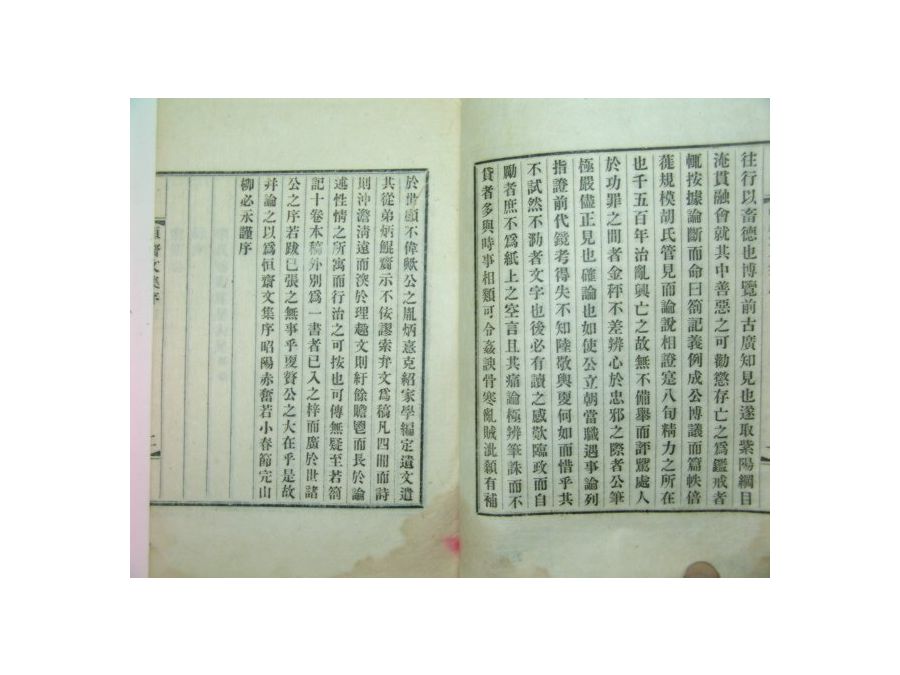 往行以畜德也博覽前古廣知見也遂取紫陽綱目
淹貫融會就其中善惡之可勸懲存亡之爲鑑戒者
輒按據論斷而命曰箚記義例成公博議而篇帙倍
蓰規模胡氏管見而論說相證寔八旬精力之所在
也千五百年治亂興亡之故無不備擧而評騭處人
於功罪之間者金秤不差辨心於忠邪之際者公筆
極嚴儘正見也確論也如使公立朝當職遇事論列
指證前代鏡考得失不知陸敬輿夏何如而惜乎其
不試然不泐者文字也後必有讀之感歎臨政而自
勵者庶不爲紙上之空言且其痛論極辨筆誅而不
貸者多與時事相類可令姦諛骨寒亂賊泚顙有補
於世顧不偉歟公之胤炳憙克紹家學編定遺文遣
其從弟炳鯤齎示不佞謬索弁文爲稿凡四冊而詩
則沖澹淸遠而深於理趣文則紆餘贍鬯而長於論
述性情之所寓而行治之可按也可傳無疑至若箚
記十卷本稿外別爲一書者已入之梓而廣於世諸
公之序若跋已張之無事乎更贅公之大在乎是故
幷論之以爲恒齋文集序昭陽赤奮若小春節完山
柳必永謹序
恒齋文集序